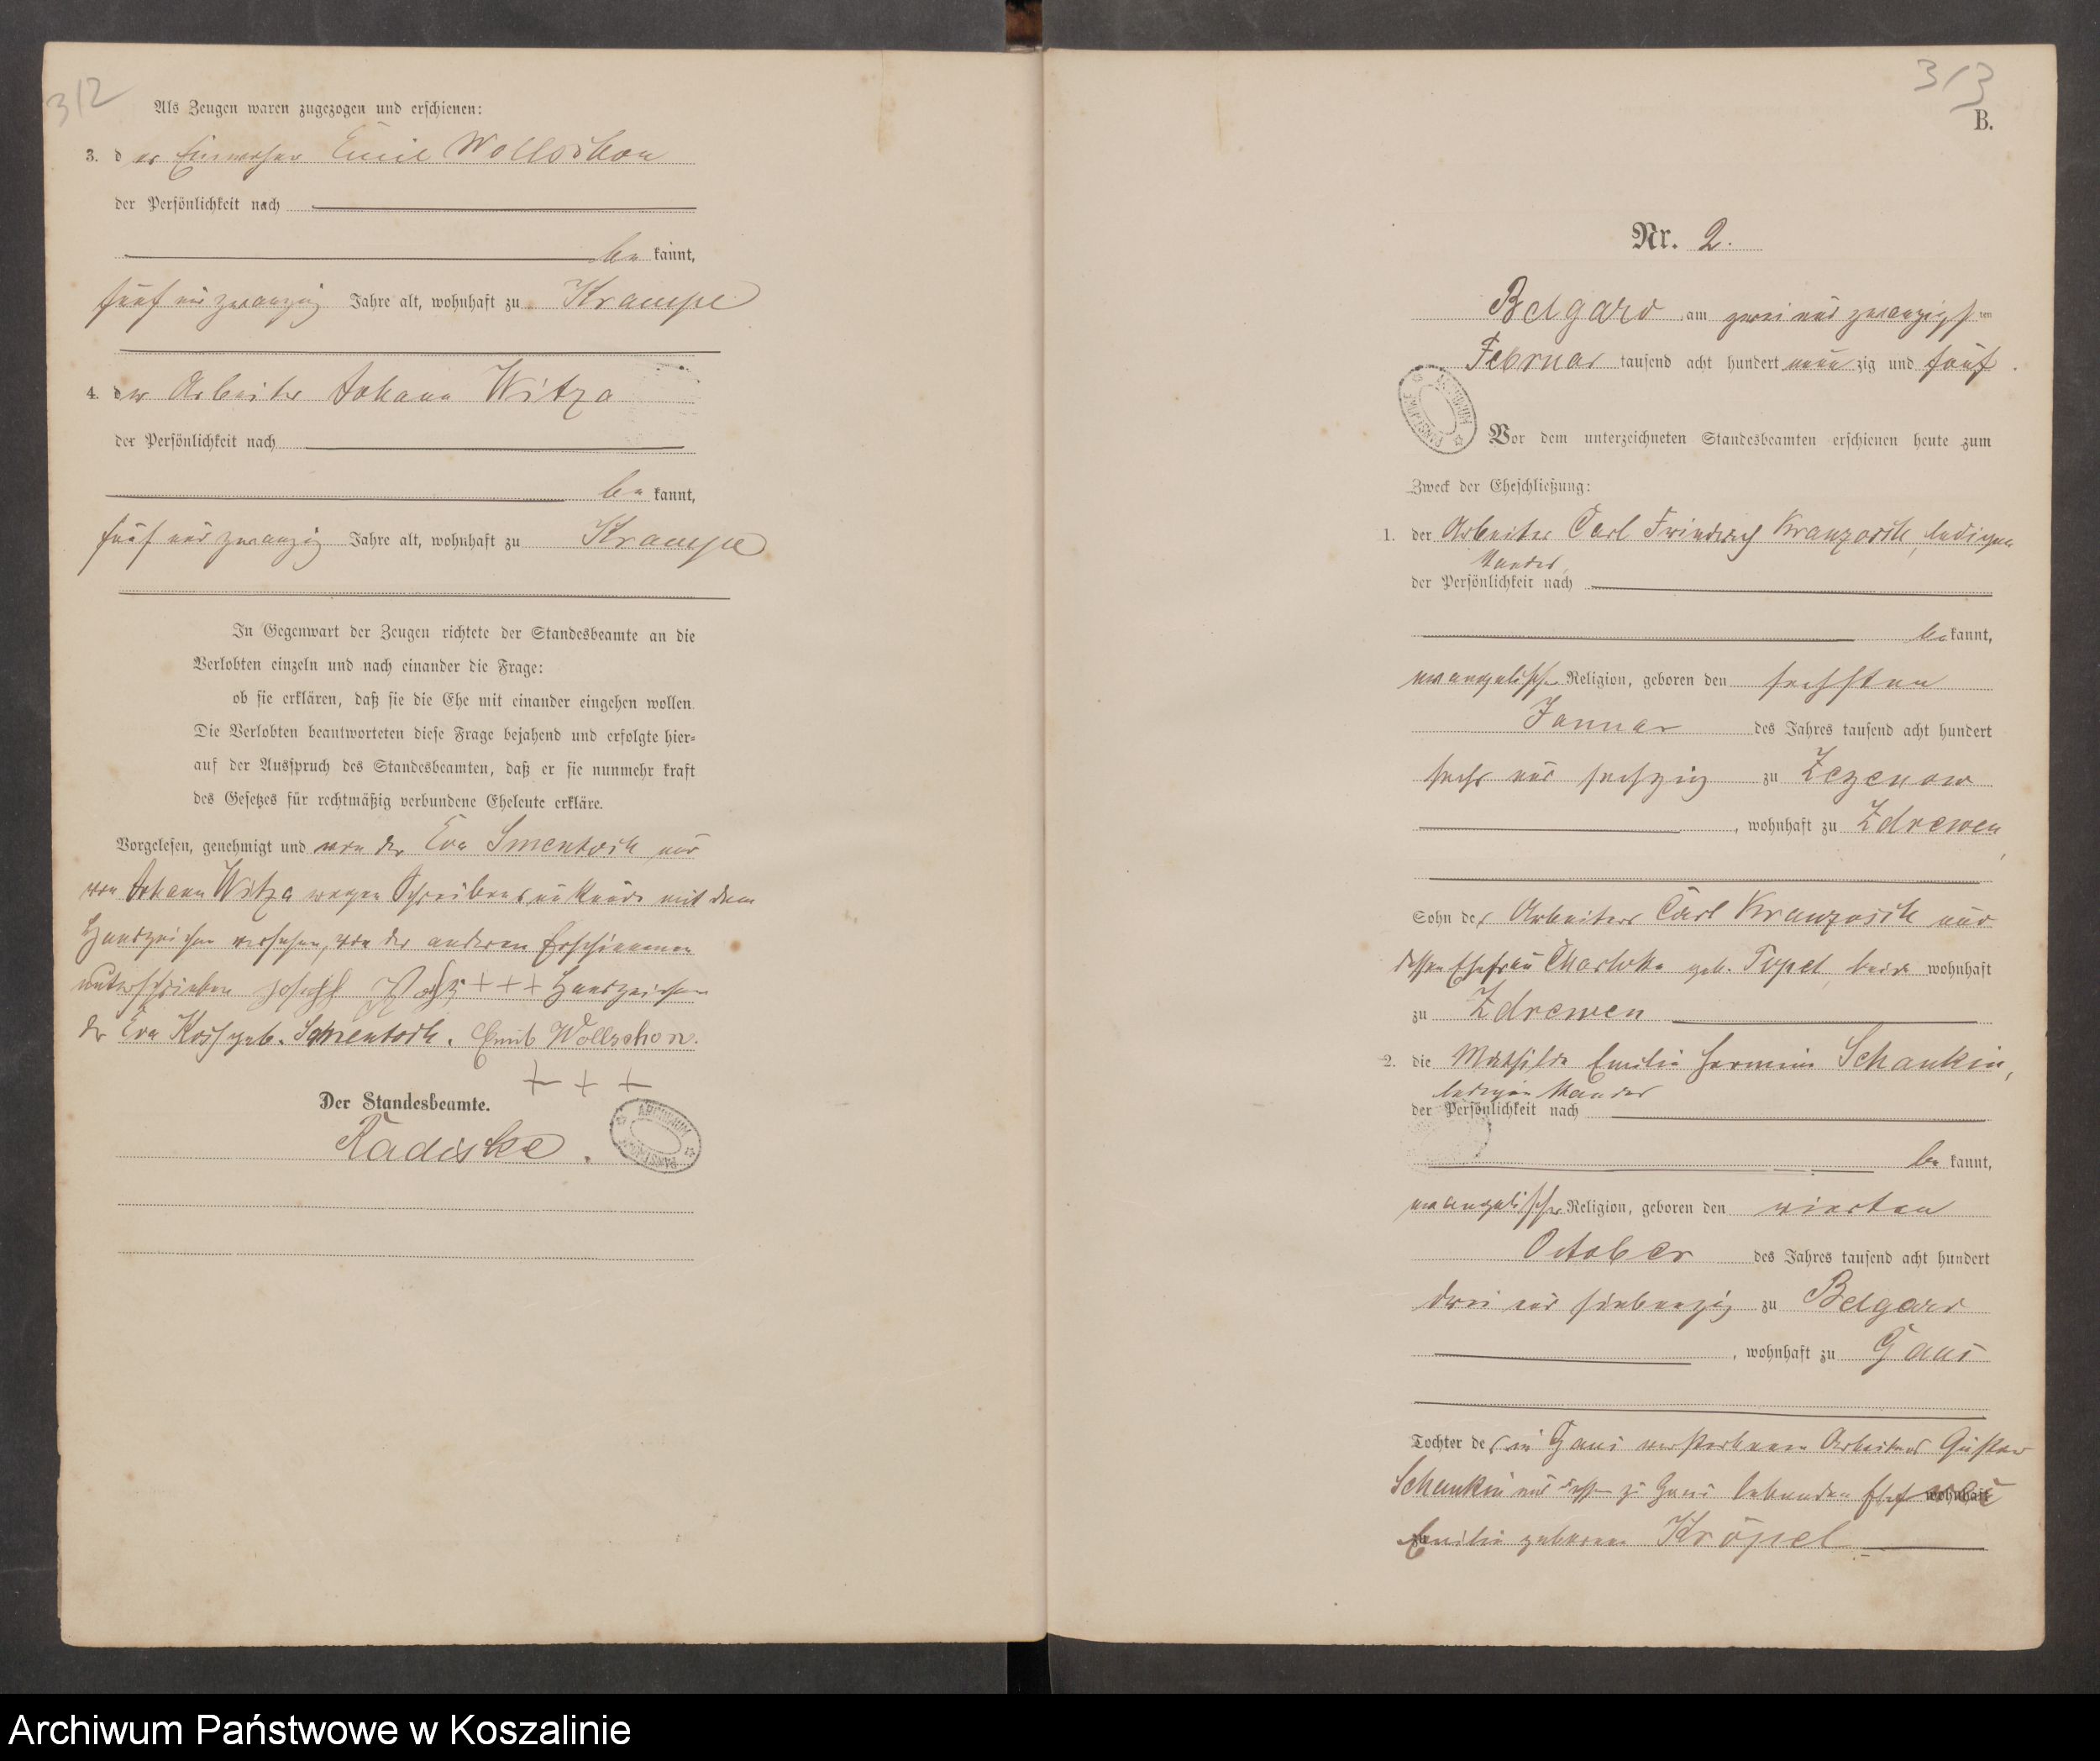 312
Als Zeugen waren zugezogen und erschienen:
3. der Einwohner Emil Wollschon
der Persönlichkeit nach
be kannt,
fünf und zwanzig Jahre alt, wohnhaft zu Krampe
4. der Arbeiter Johann Witza
der Persönlichkeit nach
be kannt,
fünf und zwanzig Jahre alt, wohnhaft zu Krampe
In Gegenwart der Zeugen richtete der Standesbeamte an die
Verlobten einzeln und nach einander die Frage:
ob sie erklären, daß sie die Ehe mit einander eingehen wollen.
Die Verlobten beantworteten diese Frage bejahend und erfolgte hier-
auf der Ausspruch des Standesbeamten, daß er sie nunmehr kraft
des Gesetzes für rechtmäßig verbundene Eheleute erkläre.
Vorgelesen, genehmigt und von der Eva Smentoch und
von Johann Witza wegen Schreibensunkunde mit dem
Handzeichen versehen, von den anderen Erschienenen
unterschrieben Joseph +++ Handzeichen
der Eva geb. Smentoch. Emil Wollschon.
+ + +
Der Standesbeamte.
Radiske.
ARCHIWUM PAŃSTWOWE
313
B.
Nr. 2.
Belgard am zwei und zwanzigsten
Februar tausend acht hundert neun zig und fünf.
ARCHIWUM PAŃSTWOWE
Vor dem unterzeichneten Standesbeamten erschienen heute zum
Zweck der Eheschließung:
1. der Arbeiter Carl Friedrich Kranzosch, ledigen
Standes,
der Persönlichkeit nach
be kannt,
evangelischer Religion, geboren den sechsten
Januar des Jahres tausend acht hundert
sechs und sechzig zu Zezenow
, wohnhaft zu Zdrewen,
Sohn des Arbeiters Carl Kranzosch und
dessen Ehefrau Charlotte geb. Topel, beide wohnhaft
zu Zdrewen
2. die Mathilde Emilie Hermine Schankin,
ledigen Standes
der Persönlichkeit nach
be kannt,
evangelischer Religion, geboren den vierten
October des Jahres tausend acht hundert
drei und siebenzig zu Belgard
, wohnhaft zu Gans
Tochter des in Gans verstorbenen Arbeiters Gustav
Schankin und dessen zu Gans lebenden Ehefrau wohnhaft
zu Emilie geborene Kröpel
Archiwum Państwowe w Koszalinie